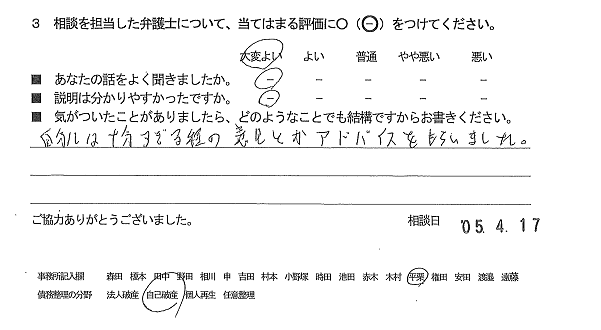 3 相談を担当した弁護士について、当てはまる評価に○(⊖)をつけてください。
大変よい よい 普通 やや悪い 悪い
■ あなたの話をよく聞きましたか。 － － － － －
■ 説明は分かりやすかったですか。 － － － － －
■ 気がついたことがありましたら、どのようなことでも結構ですからお書きください。
自分には十分すぎる程の意見とかアドバイスをもらいました。
ご協力ありがとうございました。 相談日 '05.4.17
事務所記入欄 森田 榎本 田中 野田 相川 申 吉田 村本 小野塚 時田 池田 赤木 木村 平栗 権田 安田 渡邉 遠藤
債務整理の分野 法人破産 自己破産 個人再生 任意整理